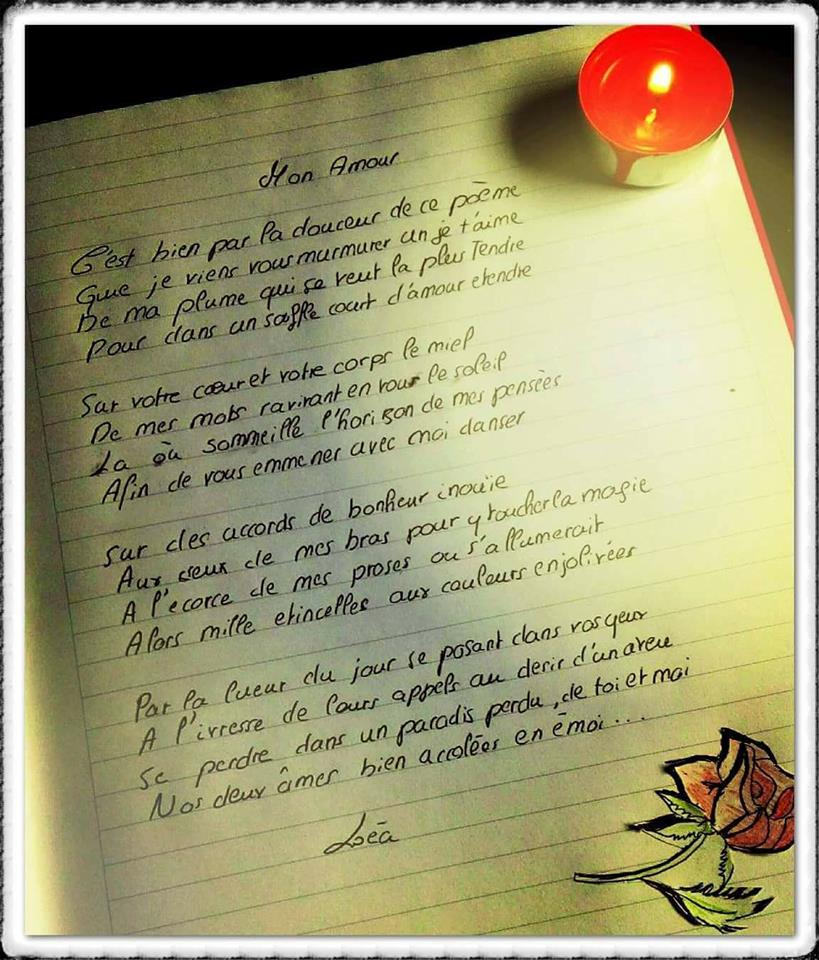 Mon Amour
C'est bien par la douceur de ce poème
Que je viens vous murmurer un je t'aime
De ma plume qui se veut la plus Tendre
Pour dans un souffle court d'amour etendre
Sur votre cœur et votre corps le miel
De mes mots ravivant en vous le soleil
La où sommeille l'horizon de mes pensées
Afin de vous emmener avec moi danser
Sur des accords de bonheur inouïe
Aux creux de mes bras pour y toucher la magie
A l'ecorce de mes proses ou s'allumerait
Alors mille etincelles aux couleurs enjolivées
Par la lueur du jour se posant dans vos yeux
A l'ivresse de leurs appels au desir d'un aveu
Se perdre dans un paradis perdu, de toi et moi
Nos deux âmes bien accolées en émoi...
Léa